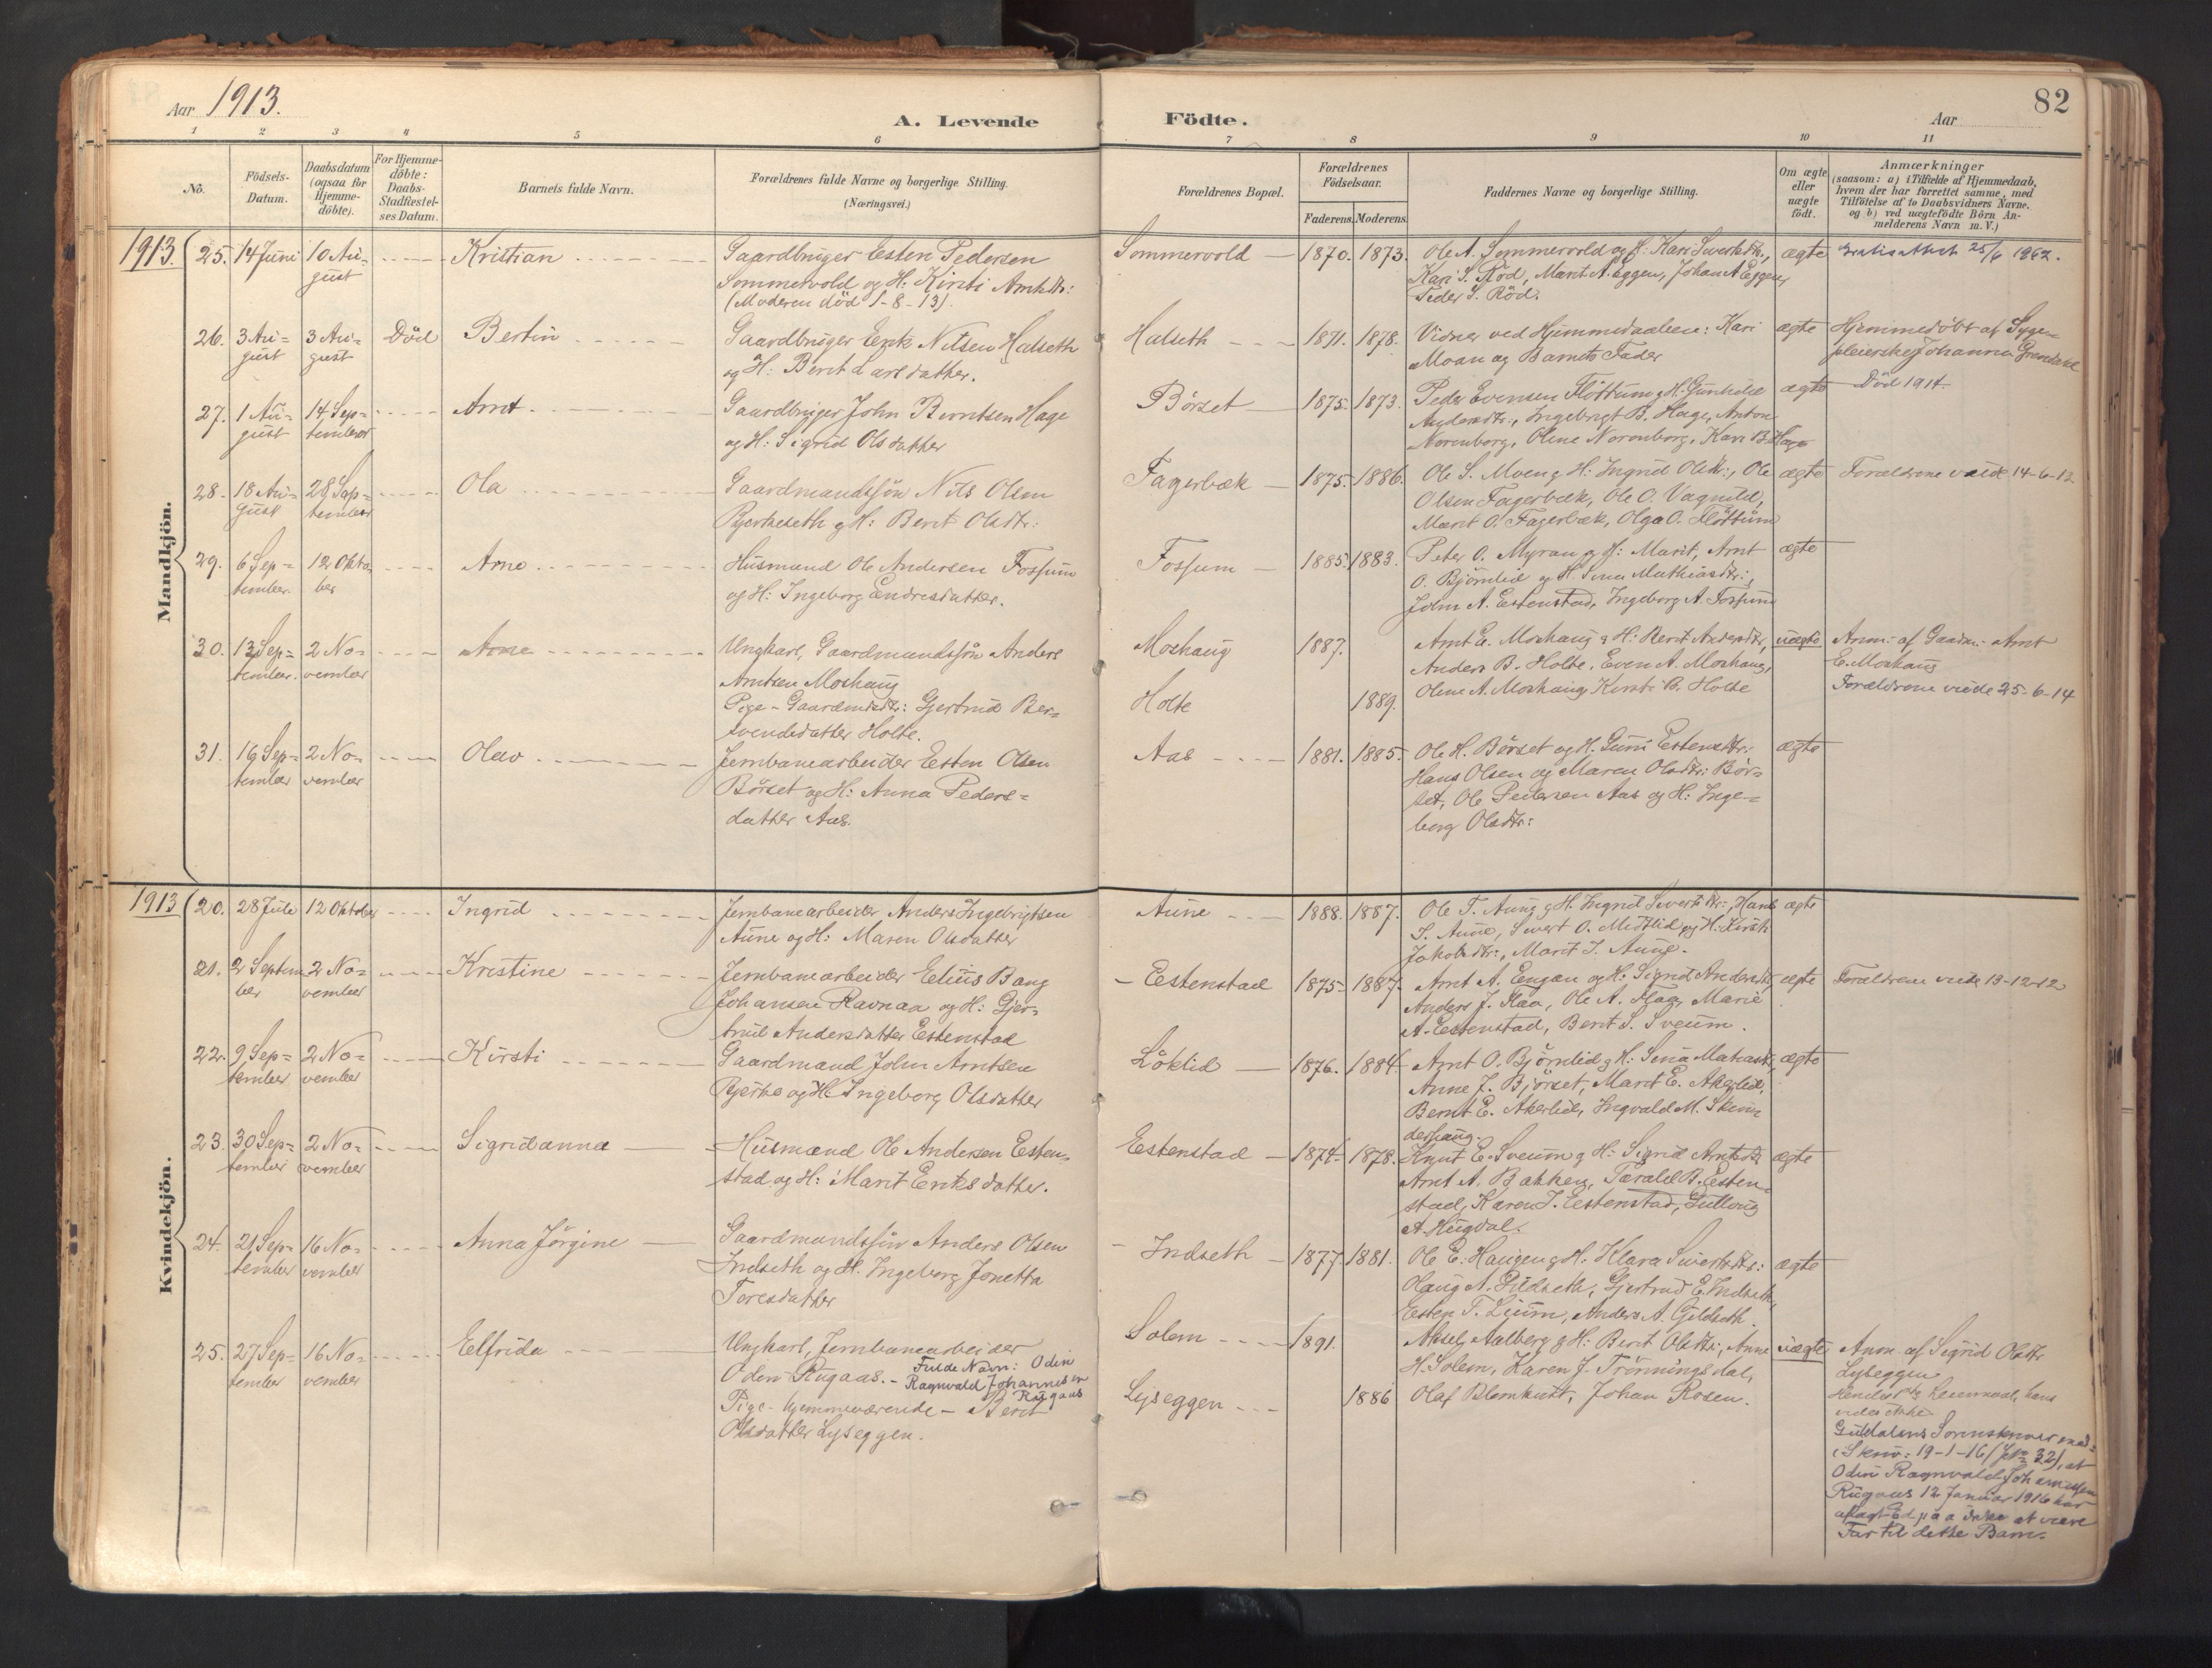 Aar 1913.
A. Levende
Födte.
Aar
82
1 2 3 4 5 6 7 8 9 10 11
No.
Födsels-
Datum.
Daabsdatum
(ogsaa for
Hjemme-
döbte).
For Hjemme-
döbte:
Daabs-
Stadfæstel-
ses Datum.
Barnets fulde Navn.
Forældrenes fulde Navne og borgerlige Stilling.
(Næringsvei.)
Forældrenes Bopæl.
Forældrenes
Födselsaar.
Faderens. Moderens.
Faddernes Navne og borgerlige Stilling.
Om ægte
eller
uægte
födt.
Anmærkninger
(saasom: a) i Tilfælde af Hjemmedaab,
hvem der har forrettet samme, med
Tilföielse af to Daabsvidners Navne.
og b) ved uægtefödte Börn An-
melderens Navn m. V.)
Mandkjön.
1913.
25. 14 Juni
10 Au-
gust
Kristian
Gaardbruger Esten Pedersen
Sommervold og H: Kirsti Arntsdtr:
(Moderen död 1-8-13).
Sommervold 1870. 1873.
Ole A. Sommervold og H: Kari Sivertsdtr.,
Kari S. Röd, Marit A. Eggen, Johan A Eggen,
Peder S. Röd.
ægte
Gratis attest 25/6 1962.
26. 3 Au-
gust
3 Au-
gust
Död
Bertin
Gaardbruger Erik Nilsen Halseth
og H: Berit Larsdatter.
Halseth 1871. 1878.
Vidner ved Hjemmedaaben: Kari
Moan og Barnets Fader
ægte
Hjemmedöbt af Syge-
pleierske Johanna Grendahl
Död 1914.
27. 1 Au-
gust
14 Sep-
tember
Arnt
Gaardbruger John Berntsen Hage
og H: Sigrid Olsdatter
Börset 1875. 1873.
Peder Evensen Flöttum og H. Gunhild
Andersdtr:, Ingebrigt B. Hage, Anton
Norenborg, Oline Norenborg, Kari B. Hage
ægte
28. 18 Au-
gust
28 Sep-
tember
Ola
Gaardmandssön Nils Olsen
Bjerkeseth og H: Berit Olsdtr:
Fagerbæk 1875. 1886.
Ole S. Moen og H: Ingrid Olsdtr:, Ole
Olsen Fagerbæk, Ole O. Vagnild,
Marit O. Fagerbæk, Olga O. Flöttum
ægte
Forældrene viede 14-6-13
29. 6 Sep-
tember.
12 Okto-
ber
Arne
Husmand Ole Andersen Fossum
og H: Ingeborg Endresdatter.
Fossum 1885. 1883.
Peter O. Myran og H: Marit, Arnt
O. Björnlid og H. Sina Mathiasdtr:,
John A. Estenstad, Ingeborg A. Fossum
ægte
30. 13 Sep-
tember.
2 No-
vember
Arne
Ungkarl, Gaardmandssön Anders
Arntsen Moshaug
Pige - Gaardmdsdtr: Gjertrud Ber-
svendsdatter Holte.
Moshaug 1887.
Holte 1889.
Arnt E. Moshaug og H: Berit Andersdtr,
Anders B. Holte, Even A. Moshaug,
Oline A. Moshaug, Kirsti B. Holte
uægte
Anm: af Gaardm: Arnt
E. Moshaug
Forældrene viede 25-6-14
31. 16 Sep-
tember
2 No-
vember
Olav
Jernbanearbeider Esten Olsen
Börset og H: Anna Peders-
datter Aas.
Aas 1881. 1885.
Ole H. Börset og H. Guri Estensdtr:
Hans Olsen og Maren Olsdtr: Bör-
set, Ole Pedersen Aas og H: Inge-
borg Olsdtr:
ægte
Kvindekjön.
1913
20. 28 Juli
12 Oktober
Ingrid
Jernbanearbeider Anders Ingebrigtsen
Aune og H: Maren Olsdatter
Aune 1888. 1887.
Ole T. Aune og H. Ingrid Sivertsdtr:, Hans
T. Aune, Sivert O. Midtlid og H: Kirsti
Jakobsdtr:, Marit I. Aune.
ægte
21. 2 Septem-
ber
2 No-
vember
Kristine
Jernbanearbeider Edius Bang
Johansen Ravnaa og H: Gjer-
trud Andersdatter Estenstad
Estenstad 1875. 1887.
Arnt A. Engan og H: Sigrid Andersdtr,
Anders J. Flaa, Ole A. Flaa, Marie
A. Estenstad, Berit S. Sveum.
ægte
Forældrene viede 13-12-12
22. 9 Sep-
tember
2 No-
vember
Kirsti
Gaardmand John Arntsen
Bjerke og H: Ingeborg Olsdatter
Löklid 1876. 1884.
Arnt O. Björnlid og H: Sina Matiasdtr,
Anne J. Bjørset, Marit E. Akerlid,
Bernt E. Akerlid, Ingvald M. Skin
derhaug.
ægte
23. 30 Sep-
tember
2 No-
vember
Sigridanna
Husmand Ole Andersen Esten-
stad og H: Marit Eriksdatter.
Estenstad 1874. 1878.
Knut E. Sveum og H: Sigrid Arntsdtr
Arnt A. Bakken, Tarald B. Esten-
stad, Karen J. Estenstad, Gullaug
A. Hugdal.
ægte
24. 21 Sep-
tember
16 No-
vember
Anna Jörgine
Gaardmandssön Anders Olsen
Indseth og H. Ingeborg Jonetta
Toresdatter
Indseth 1877. 1881.
Ole E. Haugen og H: Klara Sivertsdtr:
Haug A. Gildseth, Gjertrud E. Indseth,
Esten T. Lium, Anders A. Gildseth.
ægte
25. 27 Sep-
tember
16 No-
vember
Elfrida
Ungkarl, Jernbanearbeider
Oden Rugaas. - Fulde Navn: Odin
Ragnvald Johannesen
Rugaas
Pige - hjemmeværende - Berit
Olsdatter Lyseggen.
Solem 1891.
Lyseggen 1886
Aksel Aalberg og H: Berit Olsdtr:, Anne
H. Solem, Karen J. Trönningsdal,
Olaf Blomkvist, Johan Rosen.
uægte
Anm. af Sigrid Olsdtr
Lyseggen
Guldalens Sorenskriver med-
i Skriv: 19-1-16 (Jr 32), at
Odin Ragnvald Johannessen
Rugaas 12 Januar 1916 har
aflagt Ed paa ikke at være
Far til dette Barn.